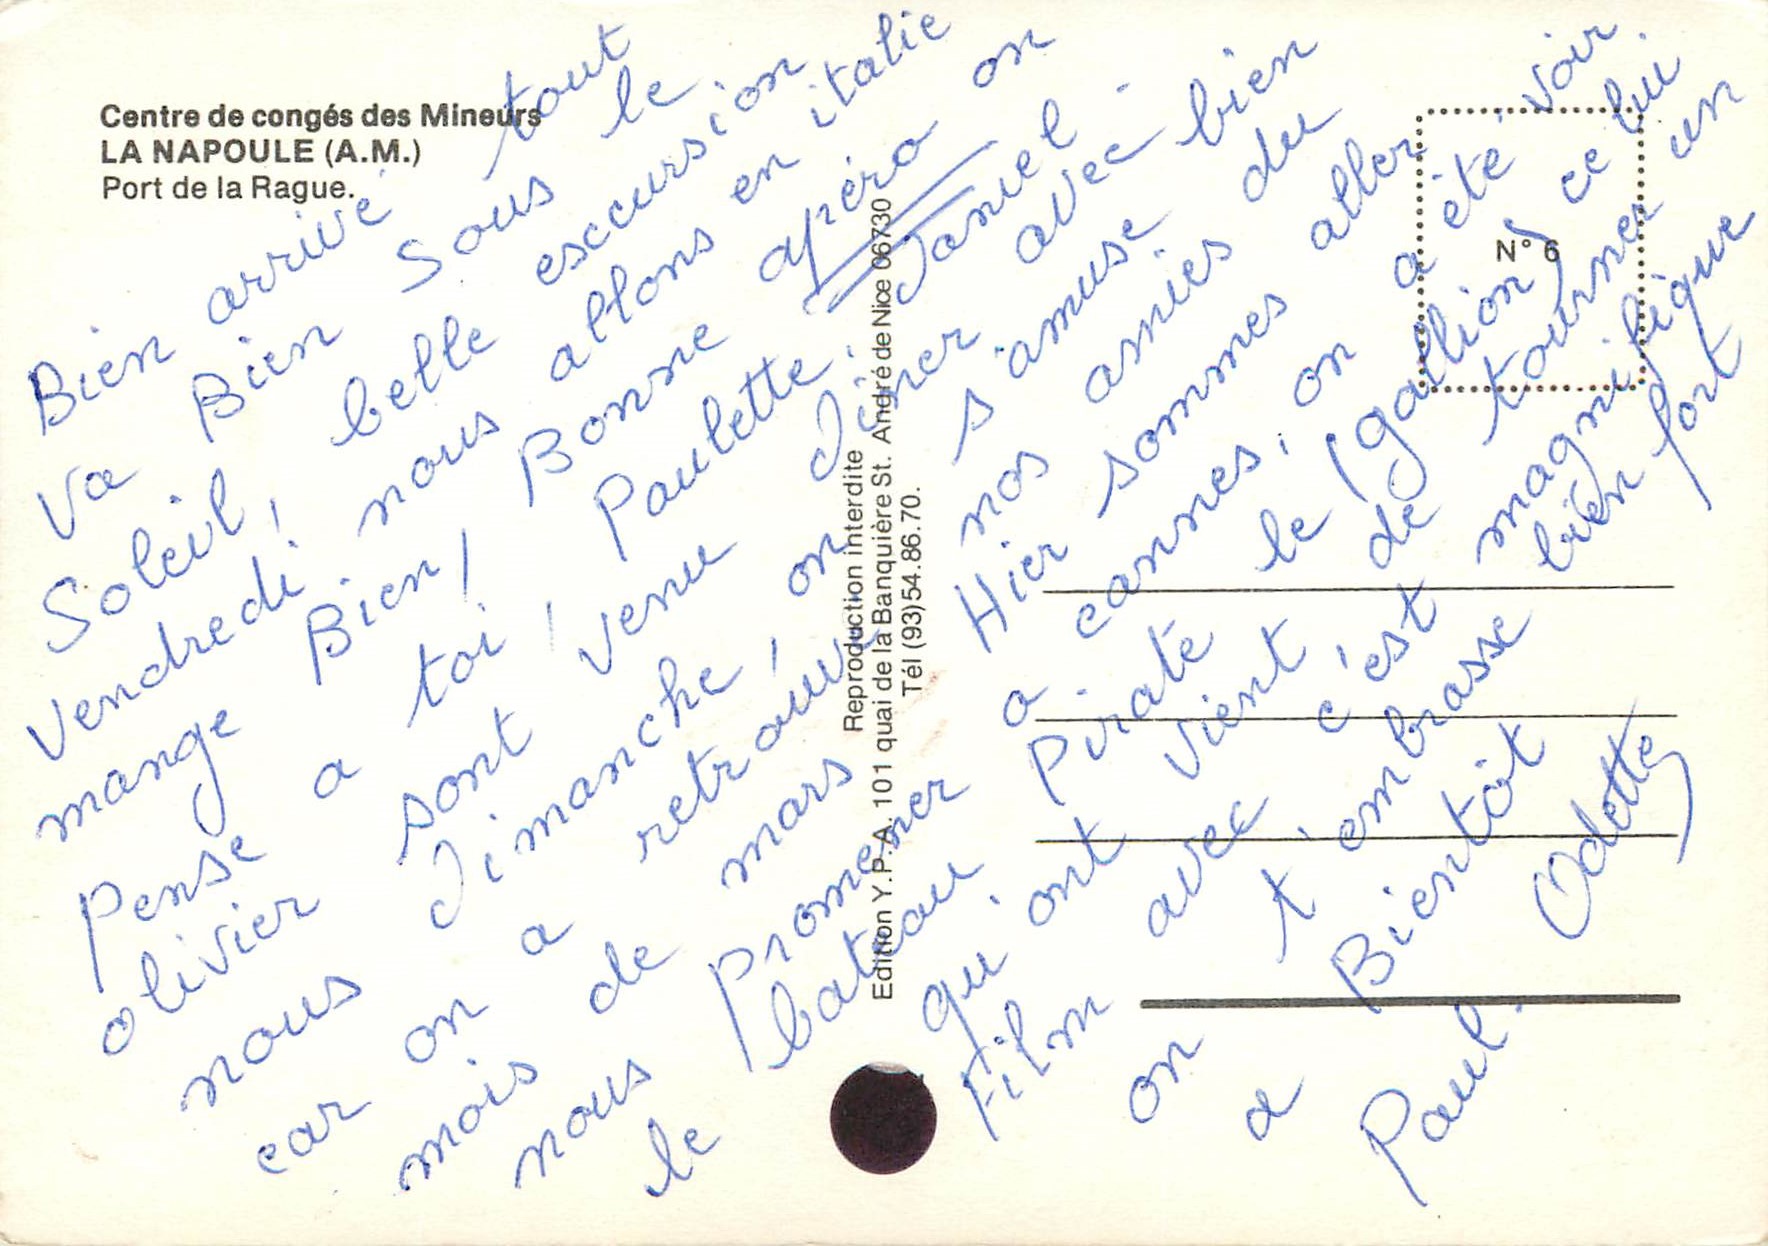 Centre de congés des Mineurs
LA NAPOULE (A.M.)
Port de la Rague.
Bien arrivé tout
va Bien sous le
Soleil, belle esccursion
vendredi nous allons en italie
mange Bien, Bonne apéro on
pense a toi ! Paulette, Daniel
olivier sont venu diner avec bien
nous dimanche, on s'amuse du
car on a retrouve nos amies
mois de mars Hier sommes aller
nous promener a cannes, on a été voir
le bateau Pirate le (gallion) ce lui
qu'ont vient de tourner un
Film avec c'est magnifique
on t'embrasse bien fort
a Bientôt
Paul. Odette
Reproduction interdite
Edition Y.P.A. 101 quai de la Banquière St. André de Nice 06730
Tél (93) 54.86.70.
N° 6